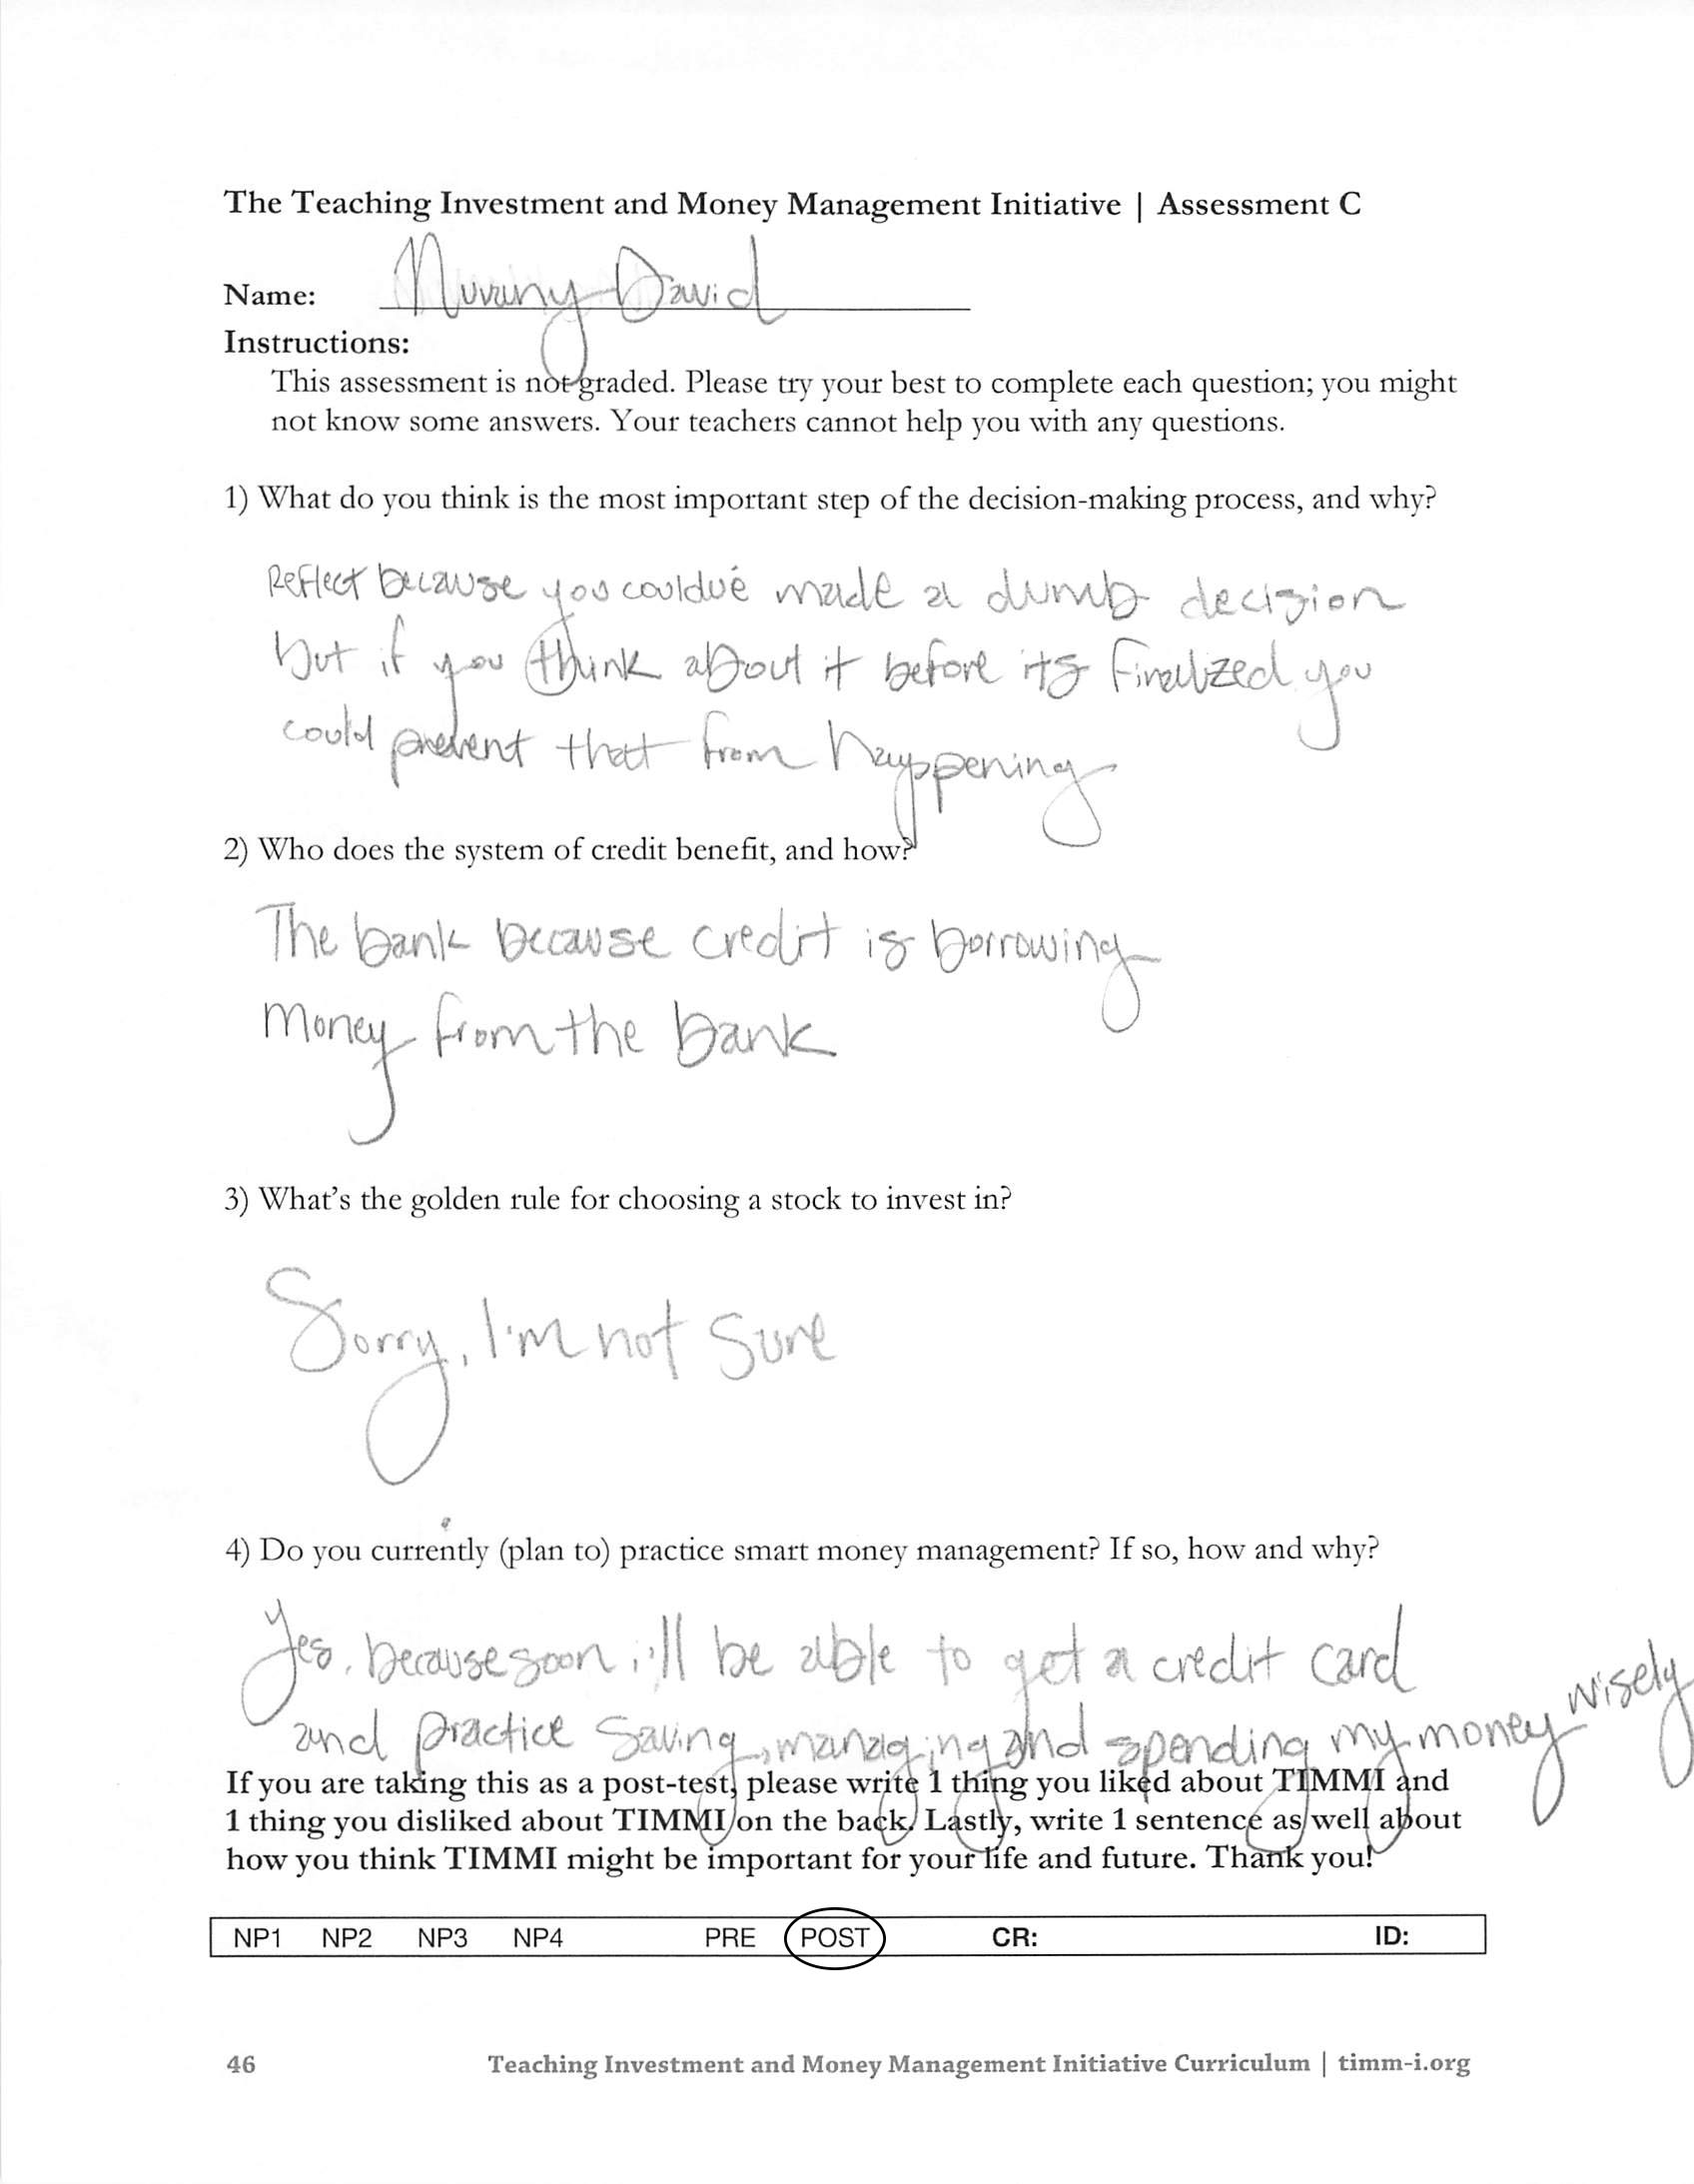 The Teaching Investment and Money Management Initiative | Assessment C
Name: David
Instructions:
This assessment is not graded. Please try your best to complete each question; you might
not know some answers. Your teachers cannot help you with any questions.
1) What do you think is the most important step of the decision-making process, and why?
Reflect because you couldve made a dumb decision
but if you think about it before its finalized you
could prevent that from happening
2) Who does the system of credit benefit, and how?
The bank because credit is borrowing
money from the bank
3) What's the golden rule for choosing a stock to invest in?
Sorry, I'm not sure
4) Do you currently (plan to) practice smart money management? If so, how and why?
Yes, because soon i'll be able to get a credit card
and practice saving, managing and spending my money wisely
If you are taking this as a post-test, please write 1 thing you liked about TIMMI and
1 thing you disliked about TIMMI on the back. Lastly, write 1 sentence as well about
how you think TIMMI might be important for your life and future. Thank you!
NP1 NP2 NP3 NP4 PRE POST CR: ID:
46 Teaching Investment and Money Management Initiative Curriculum | timm-i.org